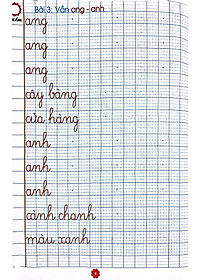 Bài 3: Vần ang - anh
ang
ang
ang
cây bàng
cửa hàng
anh
anh
anh
cành chanh
màu xanh